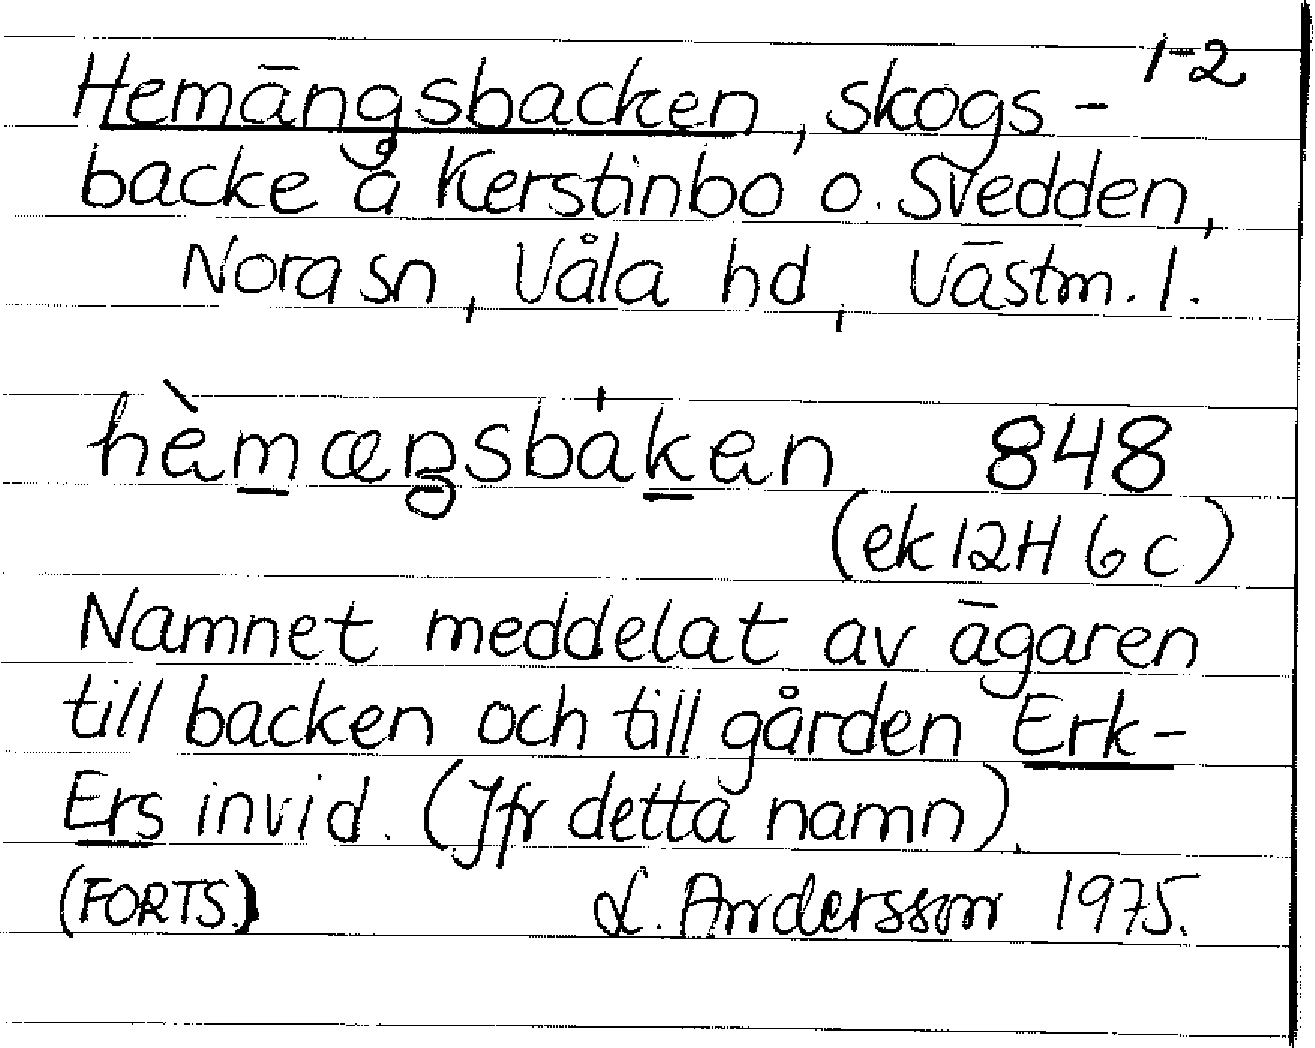 1-2
Hemängsbacken, skogs-
backe å Kerstinbo o. Svedden,
Nora sn, Våla hd, Västm. l.
hèmæŋsbáken 848
(ek 12H 6c)
Namnet meddelat av ägaren
till backen och till gården Erk-
Ers invid. (Jfr detta namn).
(FORTS.) L. Andersson 1975.